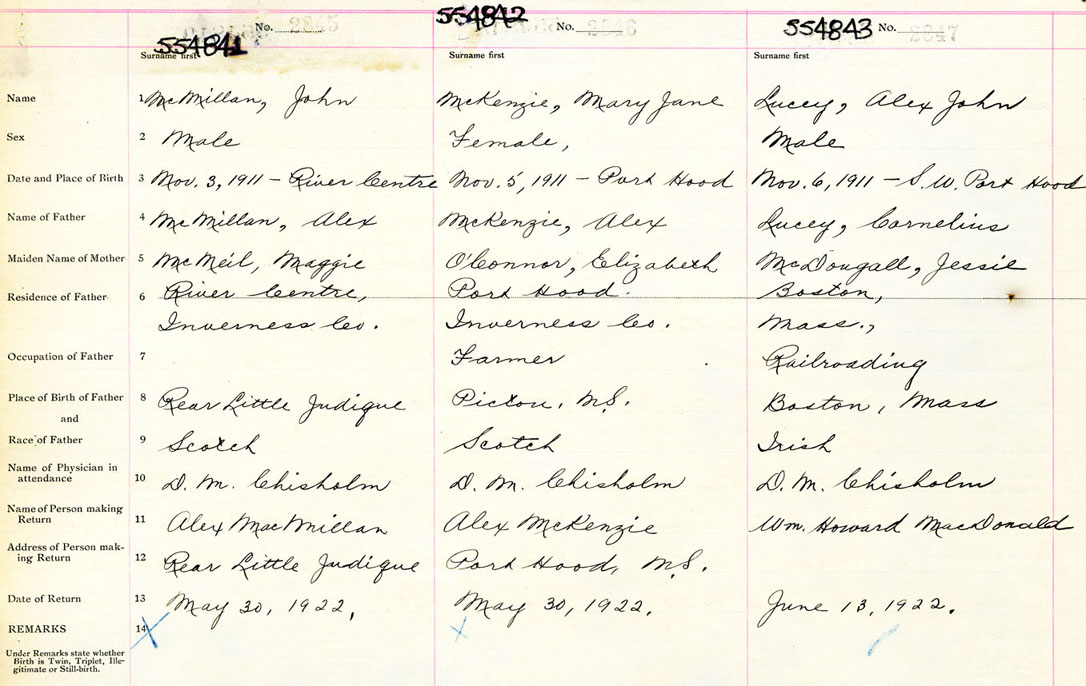 554841 No. 2845
554842 No. 2846
554843 No. 2847
Surname first Surname first Surname first
Name 1 McMillan, John McKenzie, Mary Jane Lucey, Alex John
Sex 2 Male Female, Male
Date and Place of Birth 3 Nov. 3, 1911 – River Centre Nov. 5, 1911 – Port Hood Nov. 6, 1911 – S.W. Port Hood
Name of Father 4 McMillan, Alex McKenzie, Alex Lucey, Cornelius
Maiden Name of Mother 5 McNeil, Maggie O'Connor, Elizabeth McDougall, Jessie
Residence of Father 6 River Centre, Port Hood. Boston,
Inverness Co. Inverness Co. Mass.,
Occupation of Father 7 Farmer Railroading
Place of Birth of Father 8 Rear Little Judique Pictou, N.S. Boston, Mass
and
Race of Father 9 Scotch Scotch Irish
Name of Physician in
attendance 10 D. M. Chisholm D. M. Chisholm D. M. Chisholm
Name of Person making
Return 11 Alex MacMillan Alex McKenzie Wm. Howard MacDonald
Address of Person mak-
ing Return 12 Rear Little Judique Port Hood, N.S.
Date of Return 13 May 30, 1922, May 30, 1922. June 13, 1922.
REMARKS 14
Under Remarks state whether
Birth is Twin, Triplet, Ille-
gitimate or Still-birth.